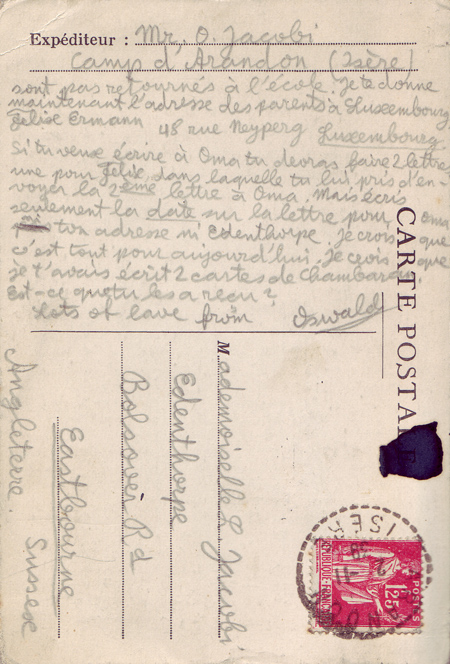 Expéditeur : Mr, O. Jacobi
Camp d'Arandon (Isère)
sont pas retournés à l'école. Je te donne
maintenant l'adresse des parents à Luxembourg
Felise Ermann
48 rue Neyperg Luxembourg
Si tu veux écrire à Oma tu devras faire 2 lettre
une pour Felix, dans laquelle tu lui pris d'en-
voyer la 2ème lettre à Oma. Mais écris
seulement la date sur la lettre pour Oma
ton adresse ni Edenthorpe. Je crois que
c'est tout pour aujourd'hui. Je crois que
je t'avais écrit 2 cartes de Chambaran.
Est-ce que tu les a reçu?
Lots of love from Oswald
CARTE POSTALE
Mademoiselle Jacobi
Edenthorpe
Bolsover Rd
Eastbourne
Sussex
Angleterre.
ISERE
REPUBLIQUE FRANÇAISE
POSTES
1F25